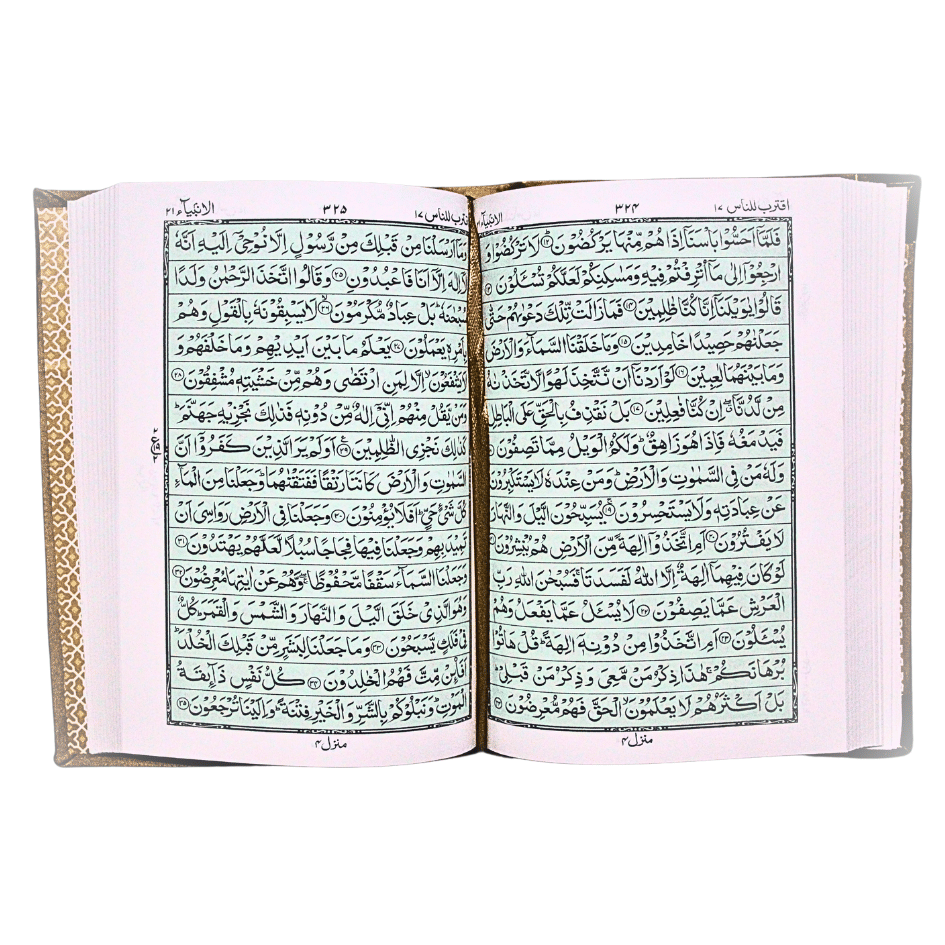 اقترب للناس ١٧
٣٢٤
الانبیآء
فَلَمَّاۤ اَحَسُّوْا بَاْسَنَاۤ اِذَا هُمْ مِّنْهَا یَرْكُضُوْنَ ۱۲ لَا تَرْكُضُوْا وَ
ارْجِعُوْۤا اِلٰی مَاۤ اُتْرِفْتُمْ فِیْهِ وَمَسٰكِنِكُمْ لَعَلَّكُمْ تُسْـَٔلُوْنَ
قَالُوْا یٰوَیْلَنَاۤ اِنَّا كُنَّا ظٰلِمِیْنَ ۱۴ فَمَا زَالَتْ تِّلْكَ دَعْوٰىهُمْ حَتّٰی
جَعَلْنٰهُمْ حَصِیْدًا خٰمِدِیْنَ ۱۵ وَمَا خَلَقْنَا السَّمَآءَ وَالْاَرْضَ
وَمَا بَیْنَهُمَا لٰعِبِیْنَ ۱۶ لَوْ اَرَدْنَاۤ اَنْ نَّتَّخِذَ لَهْوًا لَّاتَّخَذْنٰهُ
مِنْ لَّدُنَّاۤ ۖ اِنْ كُنَّا فٰعِلِیْنَ ۱۷ بَلْ نَقْذِفُ بِالْحَقِّ عَلَی الْبَاطِلِ
فَیَدْمَغُهٗ فَاِذَا هُوَ زَاهِقٌ ؕ وَلَكُمُ الْوَیْلُ مِمَّا تَصِفُوْنَ
وَلَهٗ مَنْ فِی السَّمٰوٰتِ وَالْاَرْضِ ؕ وَمَنْ عِنْدَهٗ لَا یَسْتَكْبِرُوْنَ
عَنْ عِبَادَتِهٖ وَلَا یَسْتَحْسِرُوْنَ ۱۹ یُسَبِّحُوْنَ الَّیْلَ وَالنَّهَارَ
لَا یَفْتُرُوْنَ ۲۰ اَمِ اتَّخَذُوْۤا اٰلِهَةً مِّنَ الْاَرْضِ هُمْ یُنْشِرُوْنَ
لَوْ كَانَ فِیْهِمَاۤ اٰلِهَةٌ اِلَّا اللّٰهُ لَفَسَدَتَا ۚ فَسُبْحٰنَ اللّٰهِ رَبِّ
الْعَرْشِ عَمَّا یَصِفُوْنَ ۲۲ لَا یُسْـَٔلُ عَمَّا یَفْعَلُ وَهُمْ
یُسْـَٔلُوْنَ ۲۳ اَمِ اتَّخَذُوْا مِنْ دُوْنِهٖۤ اٰلِهَةً ؕ قُلْ هَاتُوْا
بُرْهَانَكُمْ ۚ هٰذَا ذِكْرُ مَنْ مَّعِیَ وَذِكْرُ مَنْ قَبْلِیْ ؕ
بَلْ اَكْثَرُهُمْ لَا یَعْلَمُوْنَ ۙ الْحَقَّ فَهُمْ مُّعْرِضُوْنَ ۲۴
منزل ۴
اقترب للناس ١٧
٣٢٥
الانبیآء ٢١
وَمَاۤ اَرْسَلْنَا مِنْ قَبْلِكَ مِنْ رَّسُوْلٍ اِلَّا نُوْحِیْۤ اِلَیْهِ اَنَّهٗ
لَاۤ اِلٰهَ اِلَّاۤ اَنَا فَاعْبُدُوْنِ ۲۵ وَقَالُوا اتَّخَذَ الرَّحْمٰنُ وَلَدًا
سُبْحٰنَهٗ ؕ بَلْ عِبَادٌ مُّكْرَمُوْنَ ۙ ۲۶ لَا یَسْبِقُوْنَهٗ بِالْقَوْلِ وَهُمْ
بِاَمْرِهٖ یَعْمَلُوْنَ ۲۷ یَعْلَمُ مَا بَیْنَ اَیْدِیْهِمْ وَمَا خَلْفَهُمْ وَ
لَا یَشْفَعُوْنَ ۙ اِلَّا لِمَنِ ارْتَضٰی وَهُمْ مِّنْ خَشْیَتِهٖ مُشْفِقُوْنَ ۲۸
وَمَنْ یَّقُلْ مِنْهُمْ اِنِّیْۤ اِلٰهٌ مِّنْ دُوْنِهٖ فَذٰلِكَ نَجْزِیْهِ جَهَنَّمَ ؕ
كَذٰلِكَ نَجْزِی الظّٰلِمِیْنَ ۲۹ اَوَلَمْ یَرَ الَّذِیْنَ كَفَرُوْۤا اَنَّ
السَّمٰوٰتِ وَالْاَرْضَ كَانَتَا رَتْقًا فَفَتَقْنٰهُمَا ؕ وَجَعَلْنَا مِنَ الْمَآءِ
كُلَّ شَیْءٍ حَیٍّ ؕ اَفَلَا یُؤْمِنُوْنَ ۳۰ وَجَعَلْنَا فِی الْاَرْضِ رَوَاسِیَ اَنْ
تَمِیْدَ بِهِمْ وَجَعَلْنَا فِیْهَا فِجَاجًا سُبُلًا لَّعَلَّهُمْ یَهْتَدُوْنَ ۳۱
وَجَعَلْنَا السَّمَآءَ سَقْفًا مَّحْفُوْظًا ۖ وَّهُمْ عَنْ اٰیٰتِهَا مُعْرِضُوْنَ ۳۲
وَهُوَ الَّذِیْ خَلَقَ الَّیْلَ وَالنَّهَارَ وَالشَّمْسَ وَالْقَمَرَ ؕ كُلٌّ
فِیْ فَلَكٍ یَّسْبَحُوْنَ ۳۳ وَمَا جَعَلْنَا لِبَشَرٍ مِّنْ قَبْلِكَ الْخُلْدَ ؕ
اَفَا۟ئِنْ مِّتَّ فَهُمُ الْخٰلِدُوْنَ ۳۴ كُلُّ نَفْسٍ ذَآئِقَةُ
الْمَوْتِ ؕ وَنَبْلُوْكُمْ بِالشَّرِّ وَالْخَیْرِ فِتْنَةً ؕ وَاِلَیْنَا تُرْجَعُوْنَ ۳۵
منزل ۴